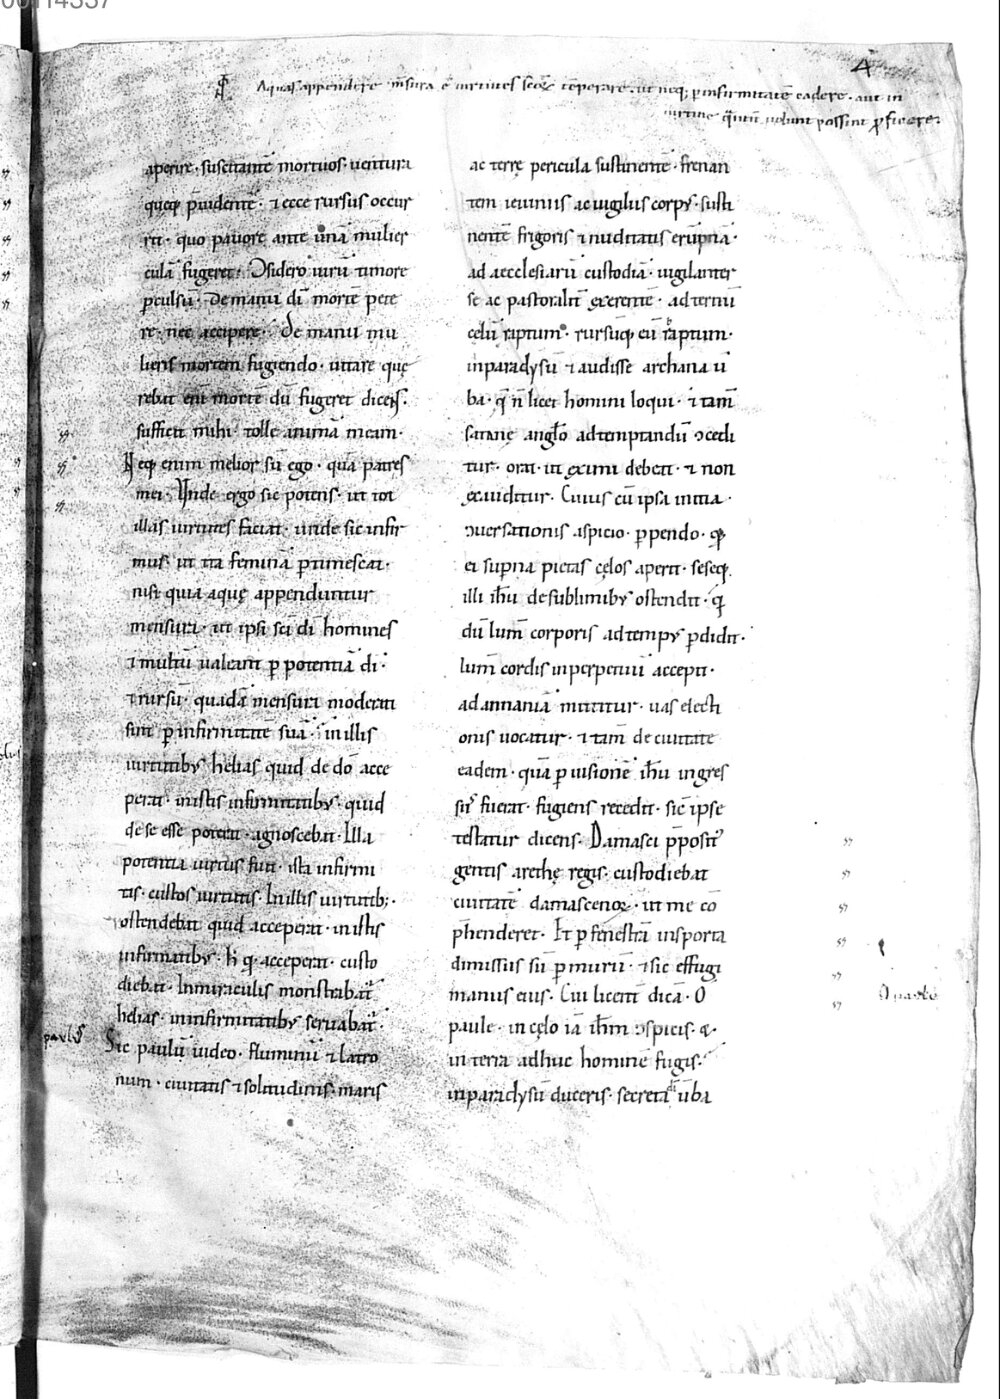 4
Aquas appendere mensura ē uirtutes scōꝝ tēperare. ut neq; ꝑ infirmitatē cadere. aut in
uirtute q̄ntū uolunt possint ꝓficere.
aperire. suscitante mortuos. uentura
quęq; p̄uidente. ⁊ ecce rursus occur
rit. quo pauore ante unā mulier
culā fugeret. Ɔsidero uirū timore
ꝑculsū. De manu dī mortē pete
re. nec accipere. De manu mu
lieris mortem fugiendo. uitare quę
rebat enī mortē dū fugeret dicens.
sufficit mihi. tolle animā meam.
Neq; enim melior sū ego. quā patres
mei. Unde ergo sic potens. ut tot
illas uirtutes faciat. unde sic infir
mus. ut ita feminā ꝑtimescat.
nisi quia aquę appenduntur
mensura. ut ipsi scī dī homines
⁊ multū ualeant ꝑ potentiā dī.
⁊ rursū quadā mensura moderati
sint ꝑ infirmitatē suā. in illis
uirtutibꝰ helias quid de dō acce
perat. in istis infirmitatibꝰ. quid
de se esse poterat. agnoscebat. Illa
potentia uirtus fuit. ista infirmi
tas. custos uirtutis. In illis uirtutib;.
ostendebat quid acceperat. in istis
infirmitatibꝰ. h̄ qđ acceperat. custo
diebat. In miraculis monstrabat̄
helias. in infirmitatibꝰ seruabat̄.
paulꝰ
Sic paulū uideo. fluminū ⁊ latro
num. ciuitatis ⁊ solitudinis. maris
ac terrę pericula sustinentē. frenan
tem ieiuniis ac uigiliis corpꝰ. susti
nentē frigoris ⁊ nuditatis erūpna.
ad aecclesiarū custodiā. uigilanter
se ac pastoralit̄ exerentē. ad tertiū
celū raptum. rursūq; eū raptum.
in paradysū ⁊ audisse archana ū
ba. q̄ n̄ licet homini loqui. ⁊ tam̄
satanę anglō ad temptandū ɔcedi
tur. orat. ut eximi debeat. ⁊ non
exauditur. Cuius cū ipsa initia.
ɔuersationis aspicio. ꝑpendo. qđ
ei suꝑna pietas cęlos aperit. seseq;
illi ih̄u de sublimibꝰ ostendit. q̄
dū lum̄ corporis ad tempꝰ ꝑdidit.
lum̄ cordis in perpetuū accepit.
ad annaniā mittitur. uas electi
onis uocatur. ⁊ tam̄ de ciuitate
eadem. quā ꝑ uisionē ih̄u ingres
sꝰ fuerat. fugiens recedit. sic ipse
testatur dicens. Damasci p̄posit̄
gentis arethę regis. custodiebat
ciuitatē damascenoꝝ. ut me cō
p̄henderet. Et ꝑ fenestrā in sporta
dimissus sū ꝑ murū. ⁊ sic effugi
manus eius. Cui licent̄ dicā. O
O paule
paule. in cęlo iā ih̄m ɔspicis. ⁊
in terra adhuc hominē fugis.
in paradysū duceris. secreta dī ūba